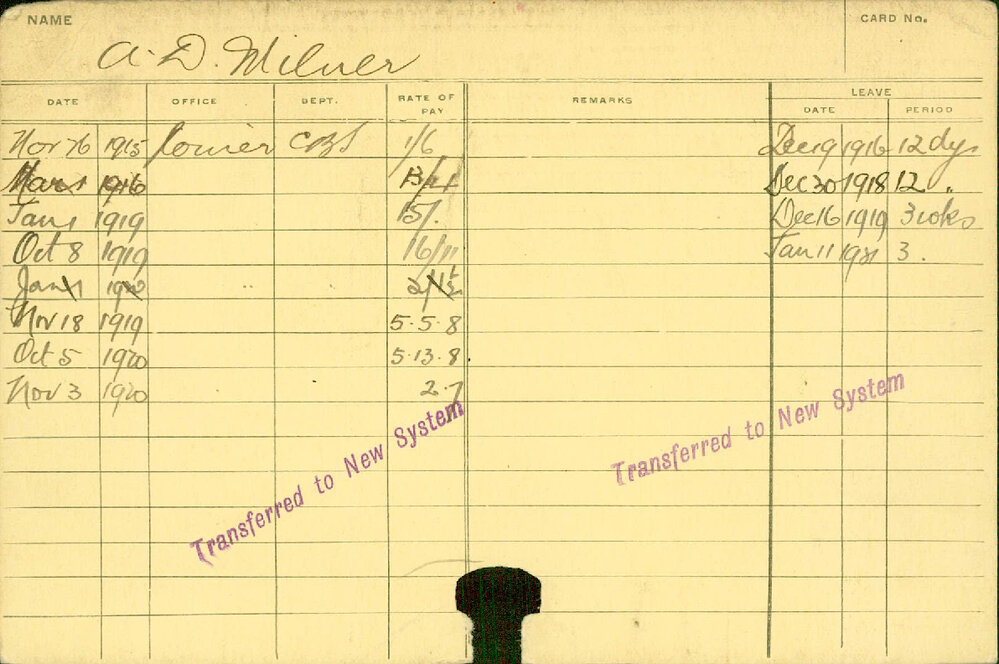 NAME
CARD No.
A. D. Milner
DATE OFFICE DEPT. RATE OF PAY REMARKS LEAVE
DATE PERIOD
Nov 26 1915 Joiner CBS 1/6 Dec 19 1916 12 dys
Mar 1 1916 Dec 30 1918 12 "
Jan 1 1919 15/. Dec 16 1919 3 wks
Oct 8 1919 16/11 Jan 11 1921 3 .
Jan 1 1920
Nov 18 1919 5.5.8
Oct 5 1920 5.13.8
Nov 3 1920 2.7
Transferred to New System
Transferred to New System